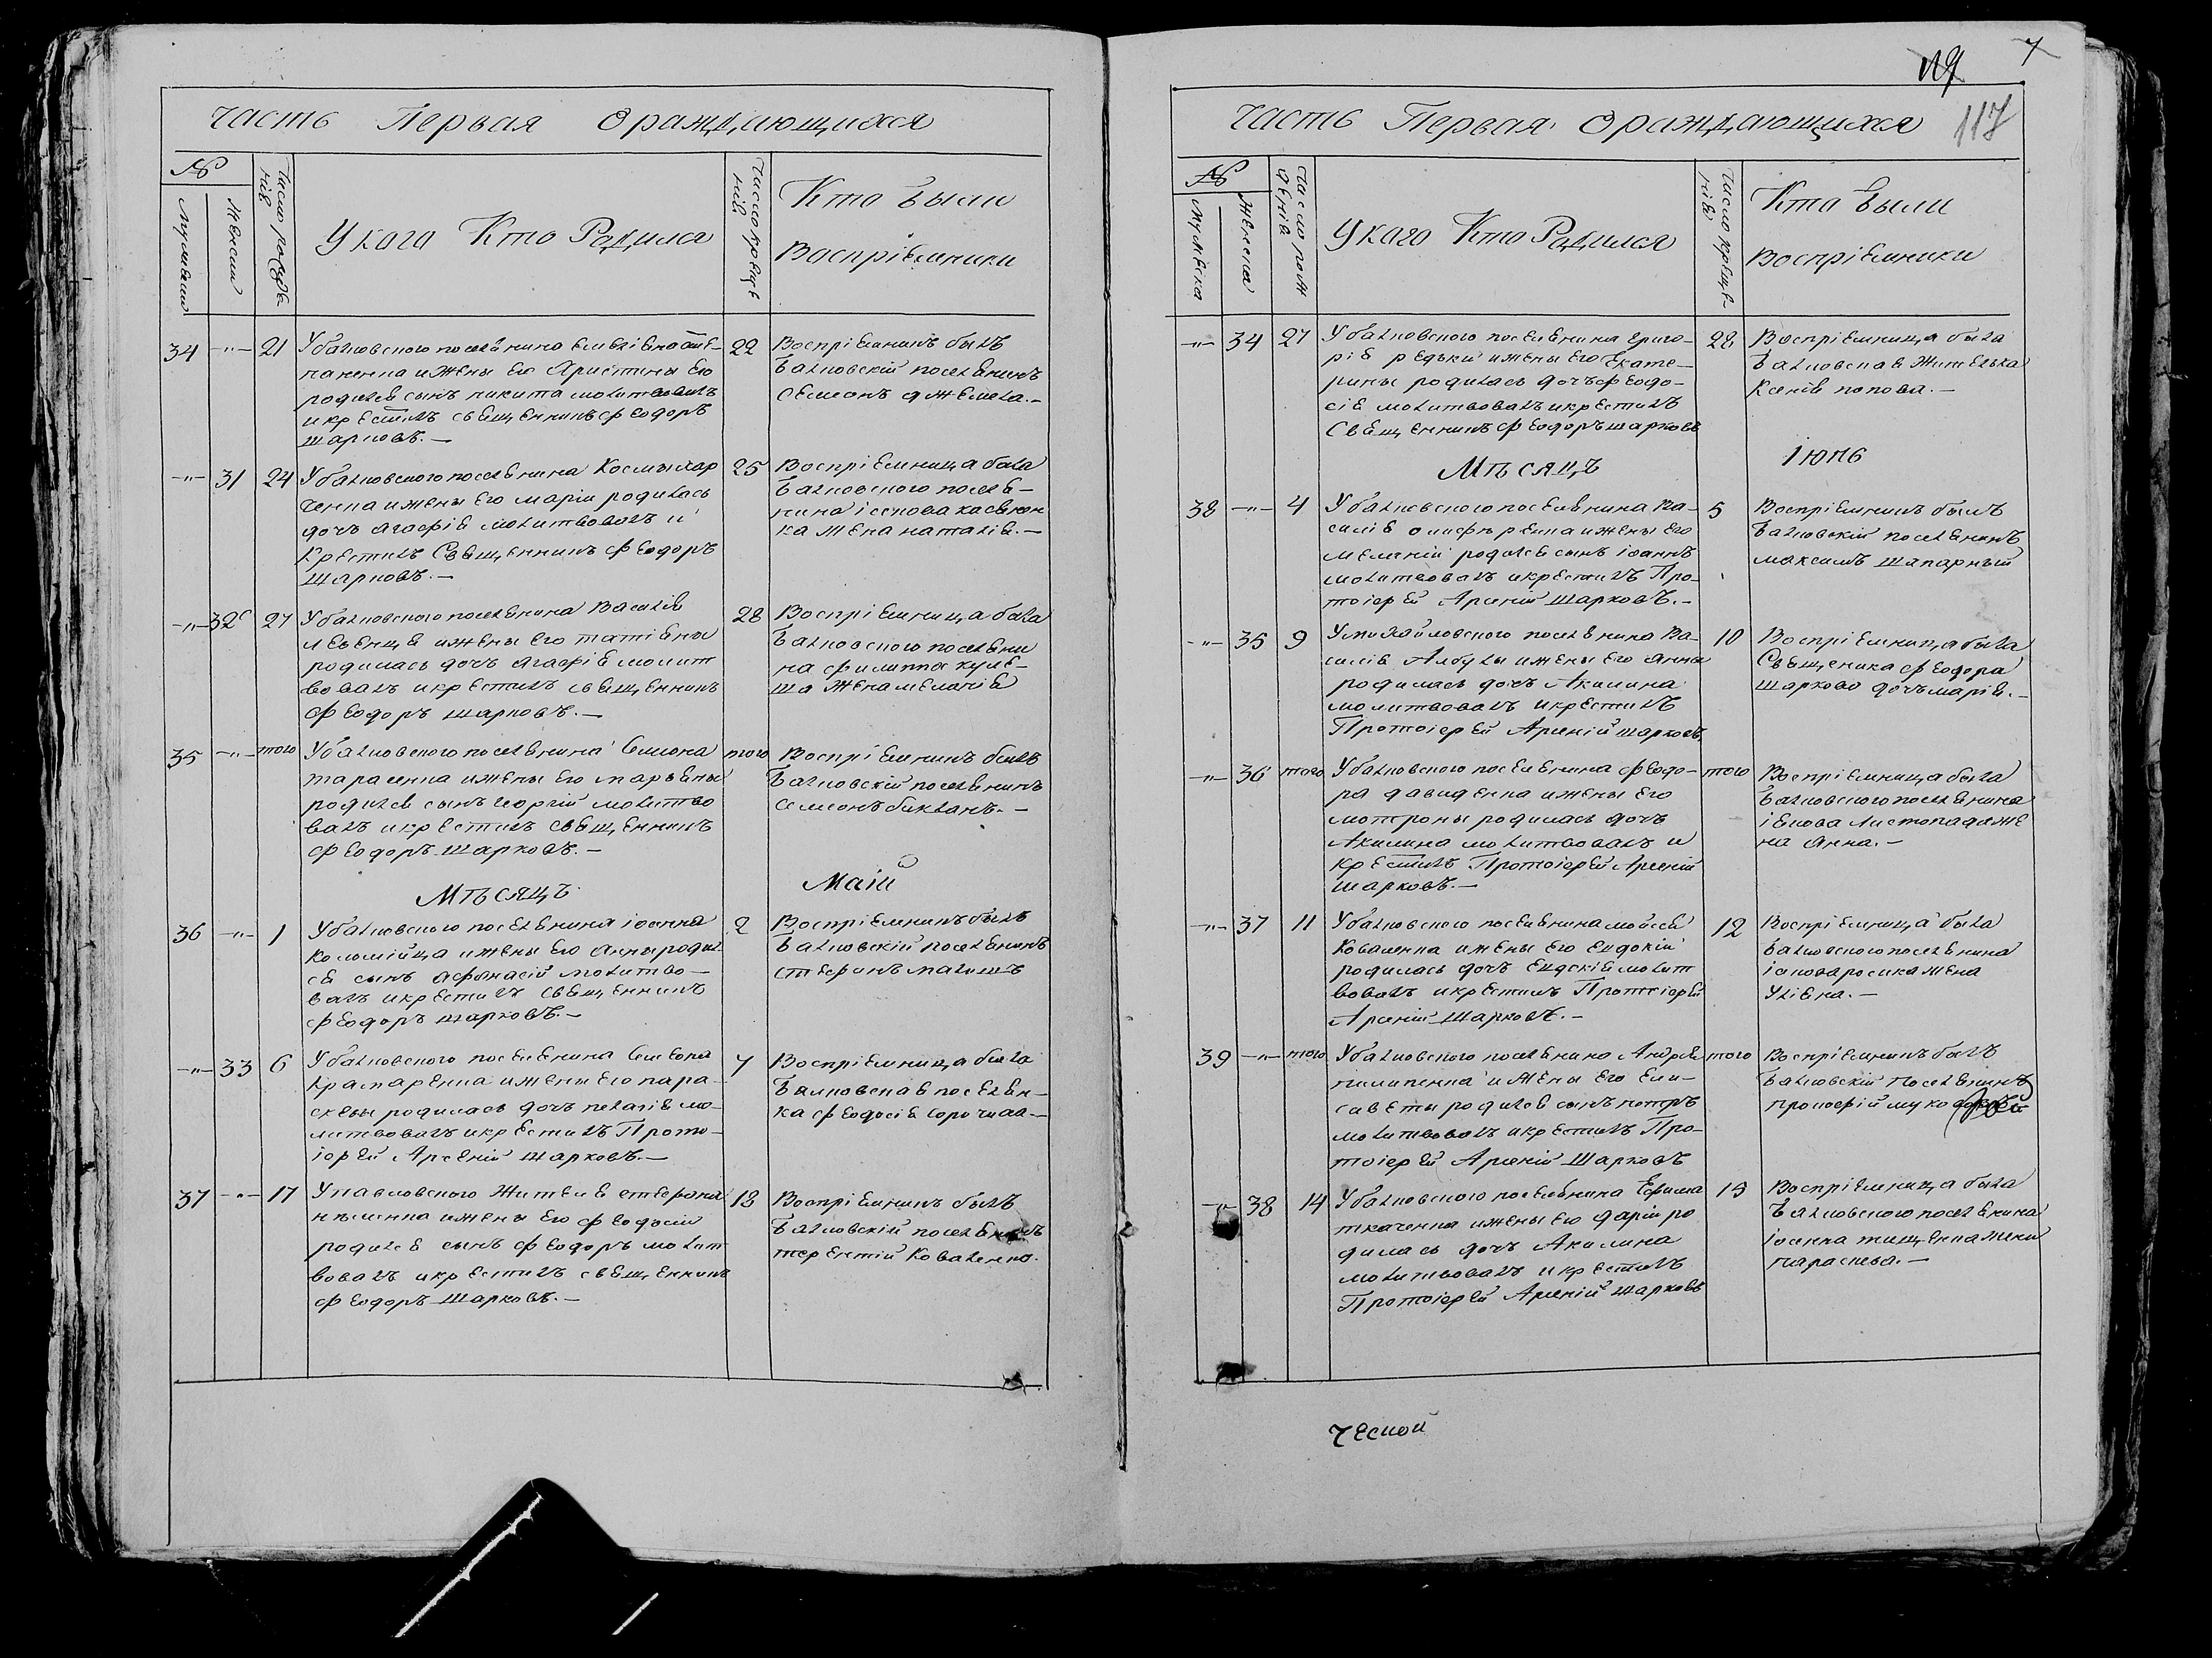 Часть Первая Ораждающихся
№
Мужеска
Женска
Число рожде-
нія
У кого Кто Родился
Число креще
нія
Кто Были
Воспріемники
34 -"- 21
У балковского поселянина
пакенка и жены Его Христины Его
родился сынъ никита молитвовалъ
и крестилъ священникъ феодоръ
шарковъ.—
22
Воспріемникъ былъ
Балковскій поселянинъ
семионъ джемела.—
-"- 31 24
У балковского поселянина Космы хар
ченка и жены Его маріи родилась
дочъ агафія молитвовалъ и
Крестилъ Священникъ феодоръ
шарковъ.—
25
Воспріемница была
Балковского поселя-
нина
ка жена наталія.—
-"- 32 27
У балковского поселянина Василія
левенця и жены его татіяны
родилась дочъ агафія молит
вовалъ и крестилъ священникъ
феодоръ шарковъ.—
28
Воспріемница была
Балковского поселяни
на филиппа куле-
ша жена меланія
35 -"- того
У балковского поселянина Симиона
тарасенка и жены Его марьяны
родился сынъ георгій молитво
валъ и крестилъ священникъ
феодоръ шарковъ.—
того
Воспріемникъ былъ
Балковскій поселянинъ
семионъ биквакъ.—
Мѣсяцъ
Маій
36 -"- 1
У балковского поселянина іоанна
коломійца и жены Его анны родил
ся сынъ афанасій молитво-
валъ и крестилъ священникъ
феодоръ шарковъ.—
2
Воспріемникъ былъ
Балковскій поселянинъ
стефанъ малишъ
-"- 33 6
У балковского поселянина Симеона
крамаренка и жены Его пара-
скевы родилась дочъ пелагія мо-
литвовалъ и крестилъ Прото-
іерей Арсеній шарковъ.—
7
Воспріемница была
Балковская поселян-
ка феодосія сорочиав.—
37 -"- 17
У павловского Жителя стефана
нѣменка и жены Его феодосіи
родился сынъ феодоръ молит
вовалъ и крестилъ священникъ
феодоръ шарковъ.—
18
Воспріемникъ былъ
Балковскій поселянинъ
терентій Коваленко.
119 7
117
Часть Первая Ораждающихся
№
Мужеска
Женска
Число рож
денія
У кого Кто Родился
Число креще-
нія
Кто Были
Воспріемники
-"- 34 27
У балковского поселянина григо-
рія редьки и жены Его Екате-
рины родилась дочъ феодо-
сія молитвовалъ и крестилъ
Священникъ феодоръ шарковъ
28
Воспріемница была
Балковская Жителька
Ксенія попова.—
Мѣсяцъ
Іюнь
38 -"- 4
У балковского поселянина Ва-
силія олифѣренка и жены Его
меланіи родился сынъ іоаннъ
молитвовалъ и крестилъ Про-
тоіерей Арсеній шарковъ.—
5
Воспріемникъ былъ
Балковскій поселянинъ
максимъ шапарный
-"- 35 9
У михайловского поселянина Ва-
силія Албулы и жены Его анны
родилась дочъ Акилина
молитвовалъ и крестилъ
Протоіерей Арсеній шарковъ.
10
Воспріемница была
Священика феодора
шаркова дочъ марія.—
-"- 36 того
У балковского поселянина феодо-
ра давиденка и жены Его
мотроны родилась дочъ
Акилина молитвовалъ и
крестилъ Протоіерей Арсеній
шарковъ.—
того
Воспріемница была
Балковского поселянина
іякова листопада же
на анна.—
-"- 37 11
У балковского поселянина мойсея
Коваленка и жены Его евдокіи
родилась дочъ евдокія молит
вовалъ и крестилъ Протоіерей
Арсеній шарковъ.—
12
Воспріемница была
Балковского поселянина
жена
Уліяна.—
39 -"- того
У балковского поселянина Андрея
пилипенка и жены Его Ели-
саветы родился сынъ петръ
молитвовалъ и крестилъ Про-
тоіерей Арсеній шарковъ
того
Воспріемникъ былъ
Балковскій Поселянинъ
прокофій
-"- 38 14
У балковского поселянина Ефима
ткаченка и жены Его даріи ро
дилась дочъ Акилина
молитвовалъ и крестилъ
Протоіерей Арсеній шарковъ
15
Воспріемница была
Балковского поселянина
іоанна тищенка жена
параскева.—
чесной